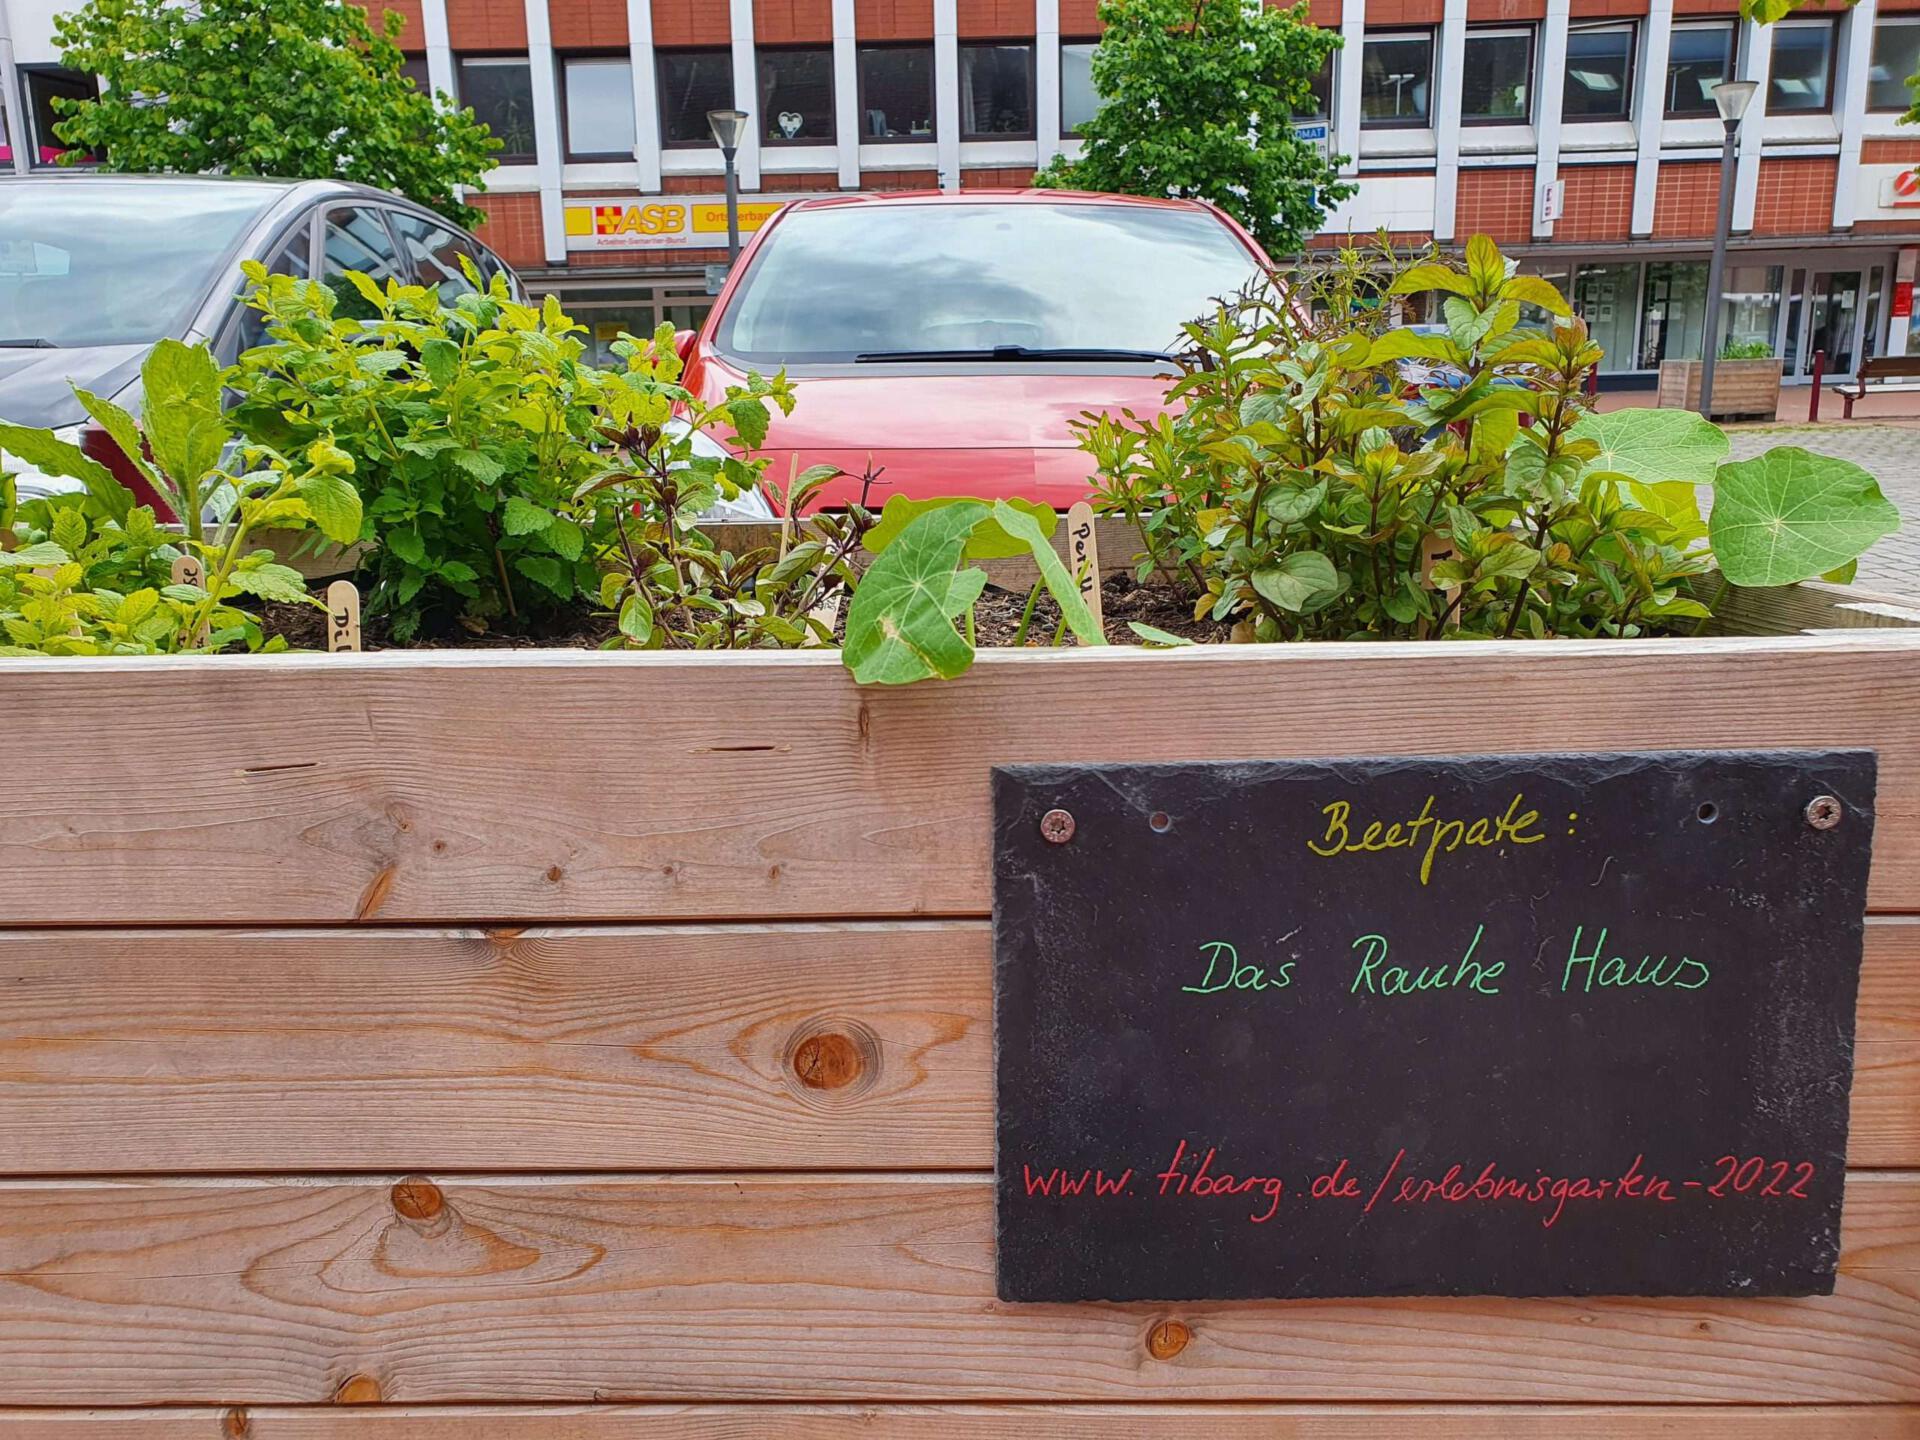 OMAT
ASB
Arbeiter-Samariter-Bund
Di
Beetpate:
Das Rauhe Haus
www.tibarg.de/erlebnisgarten-2022